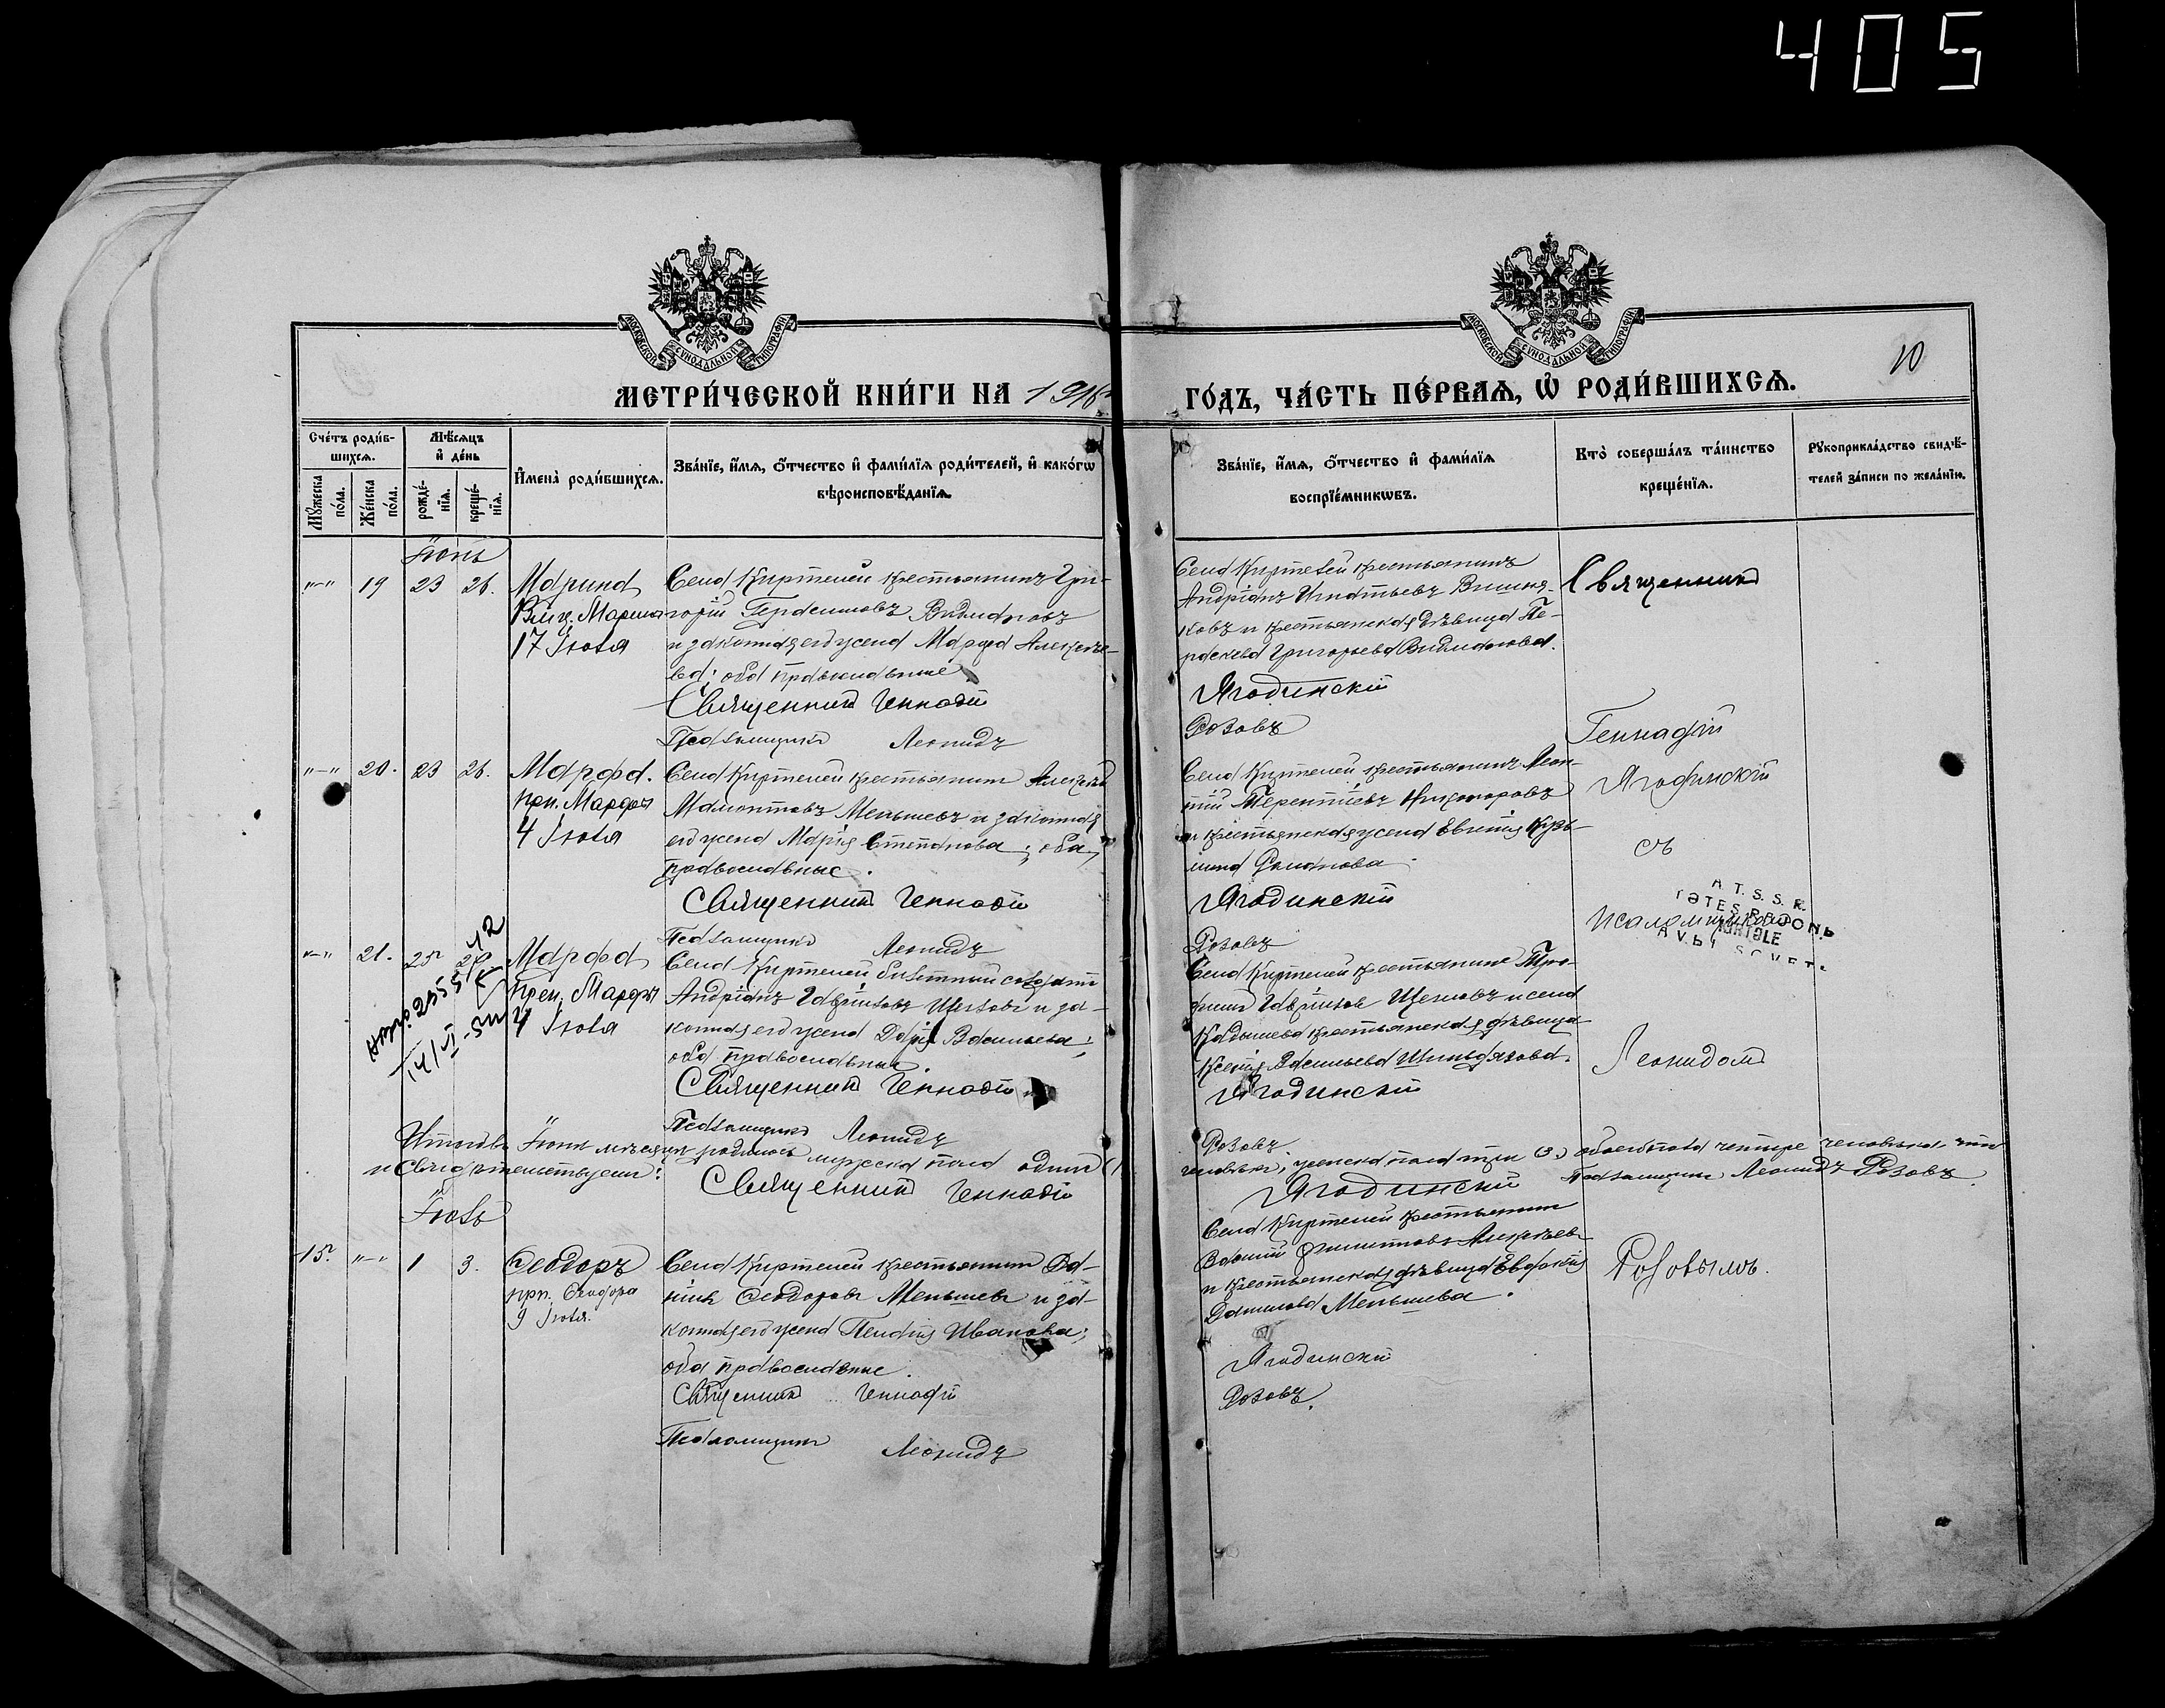 405
МОСКОВСКОЙ СѴНОДАЛЬНОЙ ТИПОГРАФІИ
МОСКОВСКОЙ СѴНОДАЛЬНОЙ ТИПОГРАФІИ
10
МЕТРИ́ЧЕСКОЙ КНИ́ГИ НА 1916
ГО́ДЪ, ЧА́СТЬ ПЕ́РВАѦ, Ѡ҆ РОДИ́ВШИХСѦ.
Сче́тъ роди́в-
шихсѧ.
Мꙋ́жеска по́ла.
Же́нска по́ла.
Мѣ́сѧцъ
и҆ де́нь
рожде́нїѧ.
креще́нїѧ.
И҆мена̀ роди́вшихсѧ.
Зва́нїе, и҆́мѧ, ѻ҆́тчество и҆ фами́лїѧ роди́телей, и҆ како́гѡ
вѣроисповѣ́данїѧ.
Зва́нїе, и҆́мѧ, ѻ҆́тчество и҆ фами́лїѧ
воспрїе́мникѡвъ.
Кто̀ соверша́лъ та́инство
креще́нїѧ.
Рꙋкоприкла́дство свидѣ́-
телей за́писи по жела́нїю.
Іюнь
"–" 19 23 26. Марина
Влмц. Марина
17 Іюля
Села Киртелей крестьянинъ Гри-
горій Герасимовъ Видманов
и законная его жена Марфа Алексѣе-
ва; оба православные
Священник Геннадій
Псаломщикъ Леонидъ
Села Киртелей крестьянинъ
Андріанъ Игнатьевъ Вишня-
ковъ и крестьянская дѣвица Па-
раскева Григорьева
Ягодинскій
Розовъ
Священник
Геннадій
Ягодинскій
съ
Псаломщиком
Леонидом
Розовымъ.
"–" 20. 23 26. Марфа.
прп. Марфы
4 Іюля
Села Киртелей крестьянин Алексѣй
Мамонтовъ Меньшевъ и законная
его жена Марія Степанова; оба
православные.
Священник Геннадій
Псаломщикъ Леонидъ
Села Киртелей крестьянинъ Леон-
тій Терентіевъ Никаноровъ
и крестьянская жена Евгенія Кузь-
мина Романова.
Ягодинскій
Розовъ
A. T. S. S. R.
"–" 21. 25 26 Марфа
Преп. Марфы
4 Іюля
Села Киртелей билетный солдатъ
Андріанъ Гавріиловъ и за-
конная его жена Дарія Васильева;
оба православные.
Священник Геннадій
Псаломщикъ Леонидъ
Села Киртелей крестьянинъ Тро-
фим Гавріилов и села
Кадышева крестьянская дѣвица
Ксенія Васильева
Ягодинскій
Розовъ
14/VI-
Итого въ Іюнѣ мѣсяцѣ родилось мужеска пола один (1)
человѣкъ; женска пола три (3) обоего пола четыре человѣка что
и свидѣтельствуем: Священник Геннадій Ягодинскій Псаломщикъ Леонидъ Розовъ
Іюль
15. "–" 1 3. Ѳеодоръ
прп. Ѳеодора
9 Іюля.
Села Киртелей крестьянин Да-
ніил Ѳеодоровъ Меньшевъ и за-
конная его жена Пелагія Иванова;
оба православные.
Священник Геннадій
Псаломщикъ Леонидъ
Села Киртелей крестьянин
Василій Филиппов Алексѣев
и крестьянская дѣвица Евдокія
Данилова Меньшева.
Ягодинскій
Розовъ.